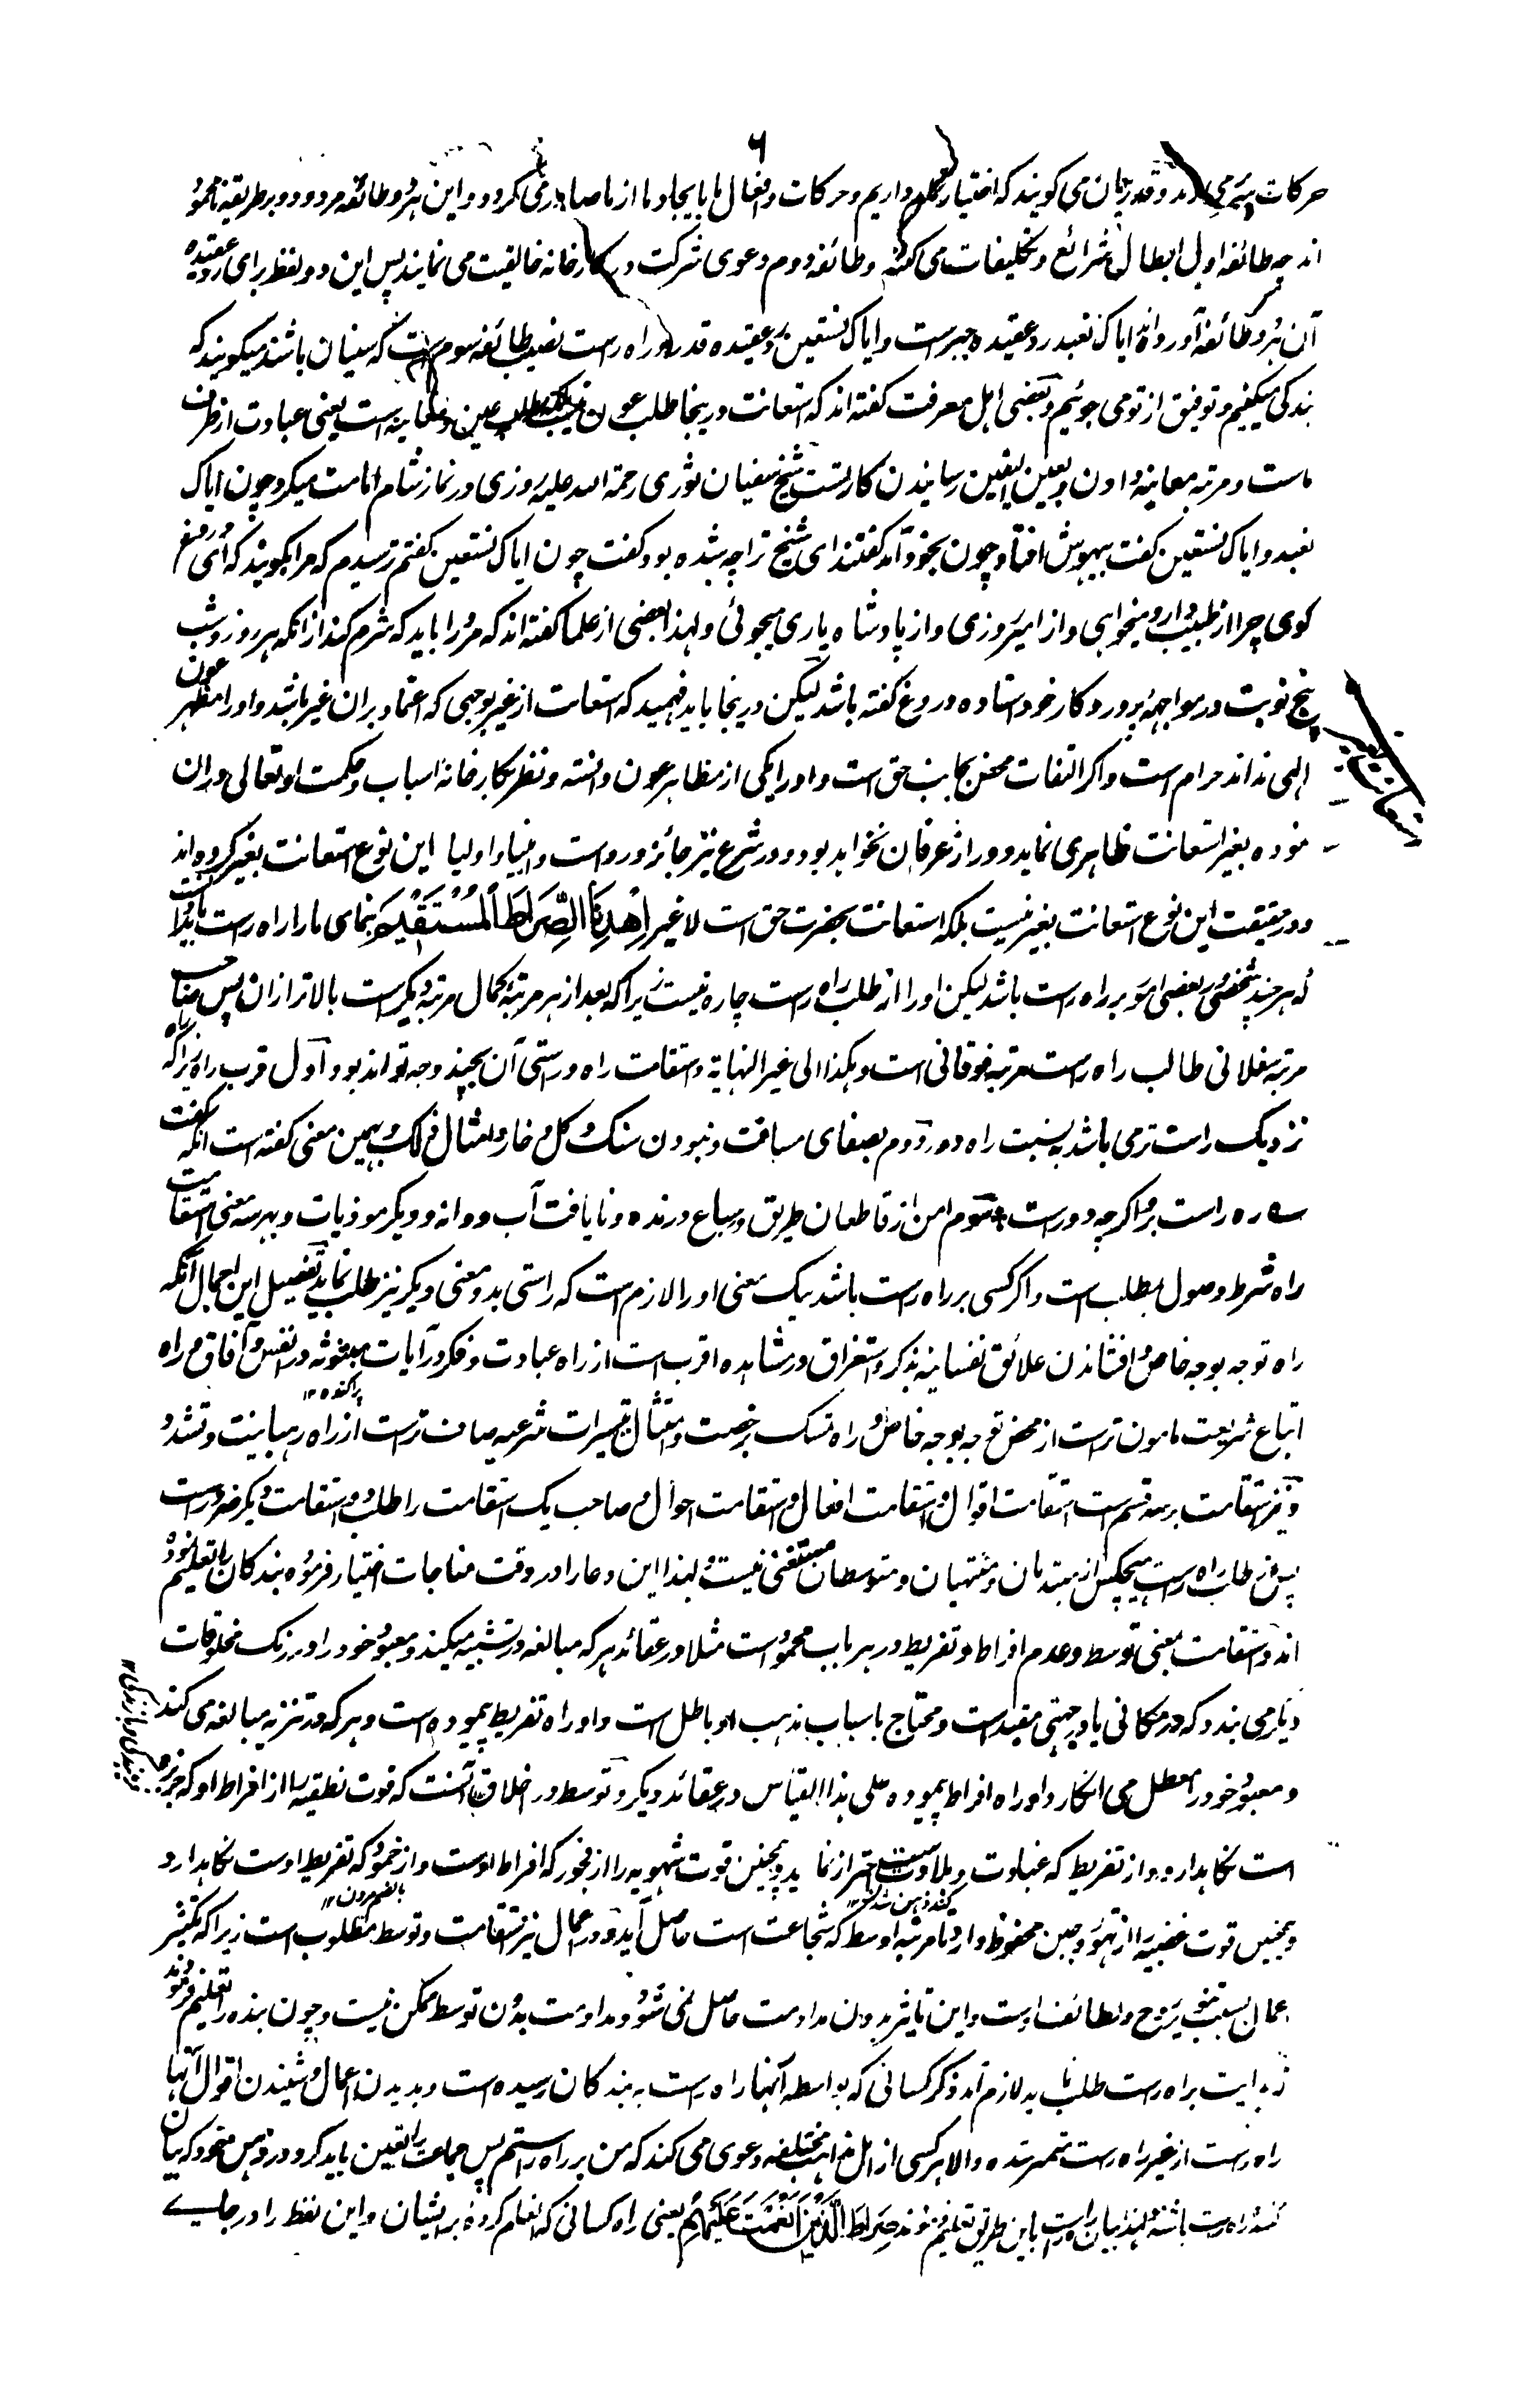 ۶
حرکات بے می و قدریان می گویند که اختیار داریم و حرکات و افعال ما بایجاد ما از ما صادر می گردد و این هر دو طائفه مردود و بر طریقه نامحمود
اند چه طائفه اول ابطال شرائع و تکلیفات می کنند و طائفه دوم دعوی شرکت در کارخانه خالقیت می نمایند پس این دو لفظ برای رد عقیده
آن هر دو طائفه آورده اند ایاک نعبد رد عقیده جبرست و ایاک نستعین رد عقیده قدر و راه راست نصیب طائفه سوم است که سنیان باشند میگویند که
بندگی میکنیم و توفیق از تو می جوئیم و بعضی اهل معرفت گفته اند که استعانت درینجا طلب عون نیست بلکه طلب عین و معاینه است یعنی عبادت از طرف
ماست و مرتبه معاینه دادن و بعین الیقین رسانیدن کار تست شیخ سفیان ثوری رحمة الله علیه روزی در نماز شام امامت میکرد چون ایاک
نعبد و ایاک نستعین گفت بیهوش افتاد چون بخود آمد گفتند ای شیخ ترا چه شده بود گفت چون ایاک نستعین گفتم ترسیدم که مرا بگویند که ای دروغ
گوی چرا از طبیب دارو میخواهی و از امیر روزی و از پادشاه یاری میجوئی و لهذا بعضی از علما گفته اند که مرد را باید که شرم کند ازانکه هر روز و شب
پنج نوبت در مواجهه پروردگار خود استاده دروغ گفته باشد لیکن درینجا باید فهمید که استعانت از غیر بوجهی که اعتماد بران غیر باشد و او را مظهر عون
الهی نداند حرام است و اگر التفات محض بجانب حق است و او را یکی از مظاهر عون دانسته و نظر بکارخانه اسباب و حکمت او تعالی دران
نموده بغیر استعانت ظاهری نماید دور از عرفان نخواهد بود و در شرع نیز جائز و رواست و انبیا و اولیا این نوع استعانت بغیر کرده اند
و در حقیقت این نوع استعانت بغیر نیست بلکه استعانت بحضرت حق است لا غیر اِهْدِنَا الصِّرَاطَ الْمُسْتَقِیْمَ بنمای ما را راه راست
که هر چند شخصی در بعضی امور بر راه راست باشد لیکن او را از طلب راه راست چاره نیست زیرا که بعد از هر مرتبه کمال مرتبه دیگرست بالاتر ازان پس صاحب
مرتبه سفلانی طالب راه راست مرتبه فوقانی است و هکذا الی غیر النهایة و استقامت راه و راستی آن بچند وجه تواند بود اول قرب راه زیرا که راه
نزدیک راست تر می باشد به نسبت راه دور دوم بصفای مسافت و نبودن سنگ و گل و خار و امثال ذلک و بهمین معنی گفته است آنکه گفت
ع ره راست برو اگرچه دورست سوم امن از قاطعان طریق و سباع درنده و نایافت آب و دانه و دیگر موذیات و بهر سه معنی استقامت
راه شرط وصول بمطلب است و اگر کسی بر راه راست باشد بیک معنی او را لازم است که راستی بدو معنی دیگر نیز طلب نماید تفصیل این اجمال آنکه
راه توجه بوجه خاص و افشاندن علائق نفسانیه بذکر و استغراق در مشاهده اقرب است از راه عبادت و فکر در آیات مبثوثه در انفس و آفاق و راه
پراگنده ۱۲
اتباع شریعت مامون ترست از محض توجه بوجه خاص و راه تمسک برخصت و امتثال تیسیرات شرعیه صاف ترست از راه رهبانیت و تشدد
و نیز استقامت بر سه قسم است استقامت اقوال و استقامت افعال و استقامت احوال و صاحب یک استقامت را طلب دو استقامت دیگر ضرورست
پس از طلب راه راست هیچکس از مبتدیان و منتهیان و متوسطان مستغنی نیست و لهذا این دعا را در وقت مناجات اختیار فرموده بندگان را تعلیم نموده
اند و استقامت بمعنی توسط و عدم افراط و تفریط در هر باب محمود است مثلا در عقائد هر که مبالغه در تشبیه میکند و معبود خود را در رنگ مخلوقات
دنیا می بندد که در مکانی یا در جهتی مقیدست و محتاج باسباب مذهب او باطل است و او راه تفریط پیموده است و هر که در تنزیه مبالغه می کند
و معبود خود را معطل می انگارد او راه افراط پیموده علی هذا القیاس در عقائد دیگر و توسط در اخلاق آنست که قوت نطقیه را از افراط او که جربزه
است نگاهدارد و از تفریط که غباوت و بلاوت است احتراز نماید و همچنین قوت شهویه را از فجور که افراط اوست و از خمود که تفریط اوست نگاهدارد
کندذهن شدن ۱۲
بالضم مردن ۱۲
و همچنین قوت غضبیه را از تهور و جبن محفوظ دارد تا مرتبه اوسط که شجاعت است حاصل آید و در اعمال نیز استقامت و توسط مطلوب است زیرا که تکثیر
اعمال بسبب تنویر روح و لطائف است و این تاثیر بدون مداومت حاصل نمی شود و مداومت بدون توسط ممکن نیست و چون بنده را تعلیم فرمودند
که هدایت براه راست طلب نماید لازم آمد ذکر کسانی که بواسطه آنها راه راست به بندگان رسیده است و بدیدن اعمال و شنیدن اقوال آنها
راه راست از غیر راه راست متمیز شده و الا هر کسی از اهل مذاهب مختلفه دعوی می کند که من بر راه راستم پس جماعت را تعین باید کرد و در ذهن خود که بیان
کننده راه راست باشند لهذا بیان راه راست باین طریق تعلیم فرمودند صِرَاطَ الَّذِیْنَ اَنْعَمْتَ عَلَیْهِمْ یعنی راه کسانی که انعام کرده بر ایشان و این لفظ را در جاے
استعانت از غیر